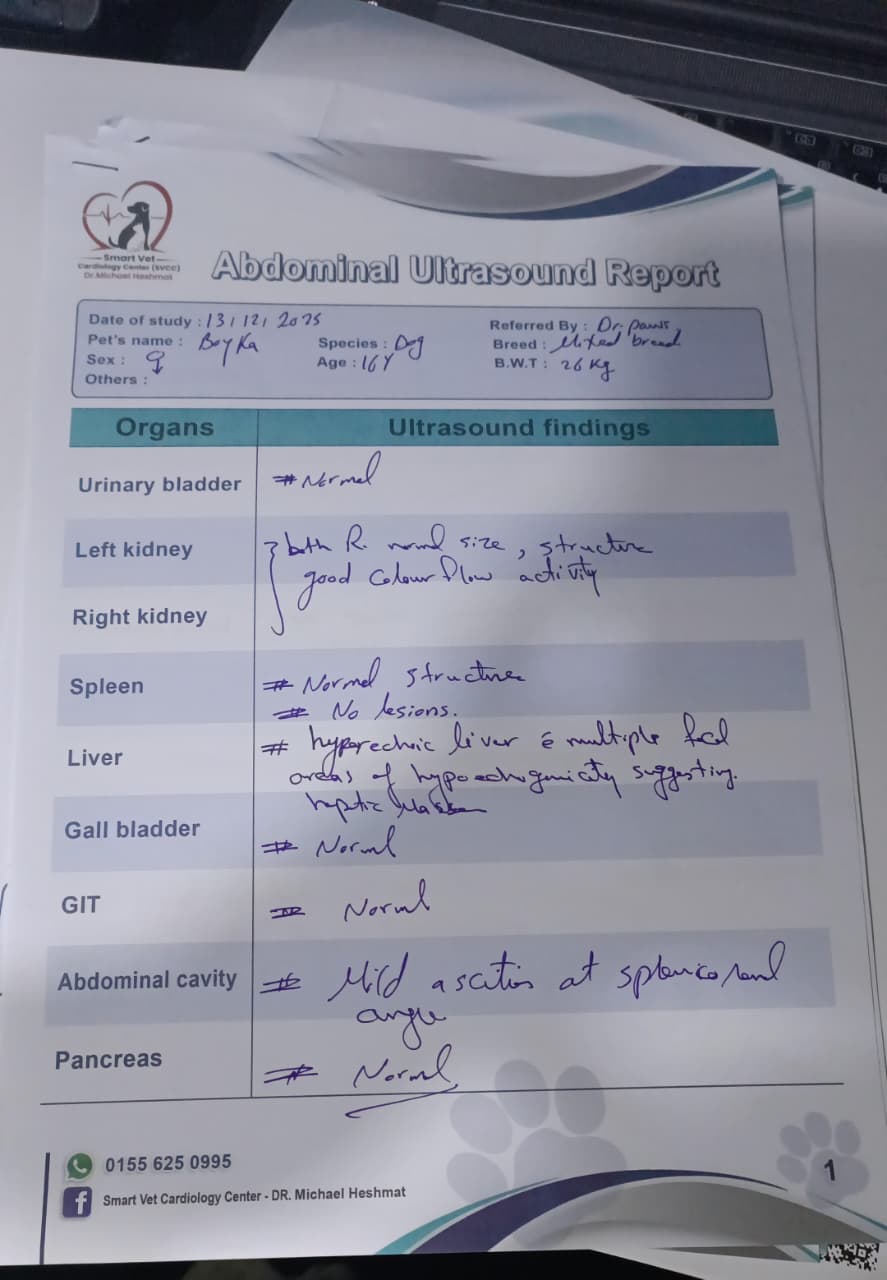 Smart Vet
Cardiology Center (SVCC)
Dr. Michael Heshmat
Abdominal Ultrasound Report
Date of study : 13 / 12 / 2025
Referred By : Dr. paws
Pet's name : Boyka
Species : Dog
Breed : Mixed breed
Sex : ♀
Age : 16 Y
B.W.T : 26 Kg
Others :
Organs
Ultrasound findings
Urinary bladder
# Normal
Left kidney
Right kidney
both R. normal size, structure
good colour flow activity
Spleen
# Normal structure
# No lesions.
Liver
# hyperechoic liver c̄ multiple focal
areas of hypoechogenicity suggesting.
hepatic
Gall bladder
# Normal
GIT
# Normal
Abdominal cavity
# Mild ascites at splenico renal
angle
Pancreas
# Normal
0155 625 0995
Smart Vet Cardiology Center - DR. Michael Heshmat
1